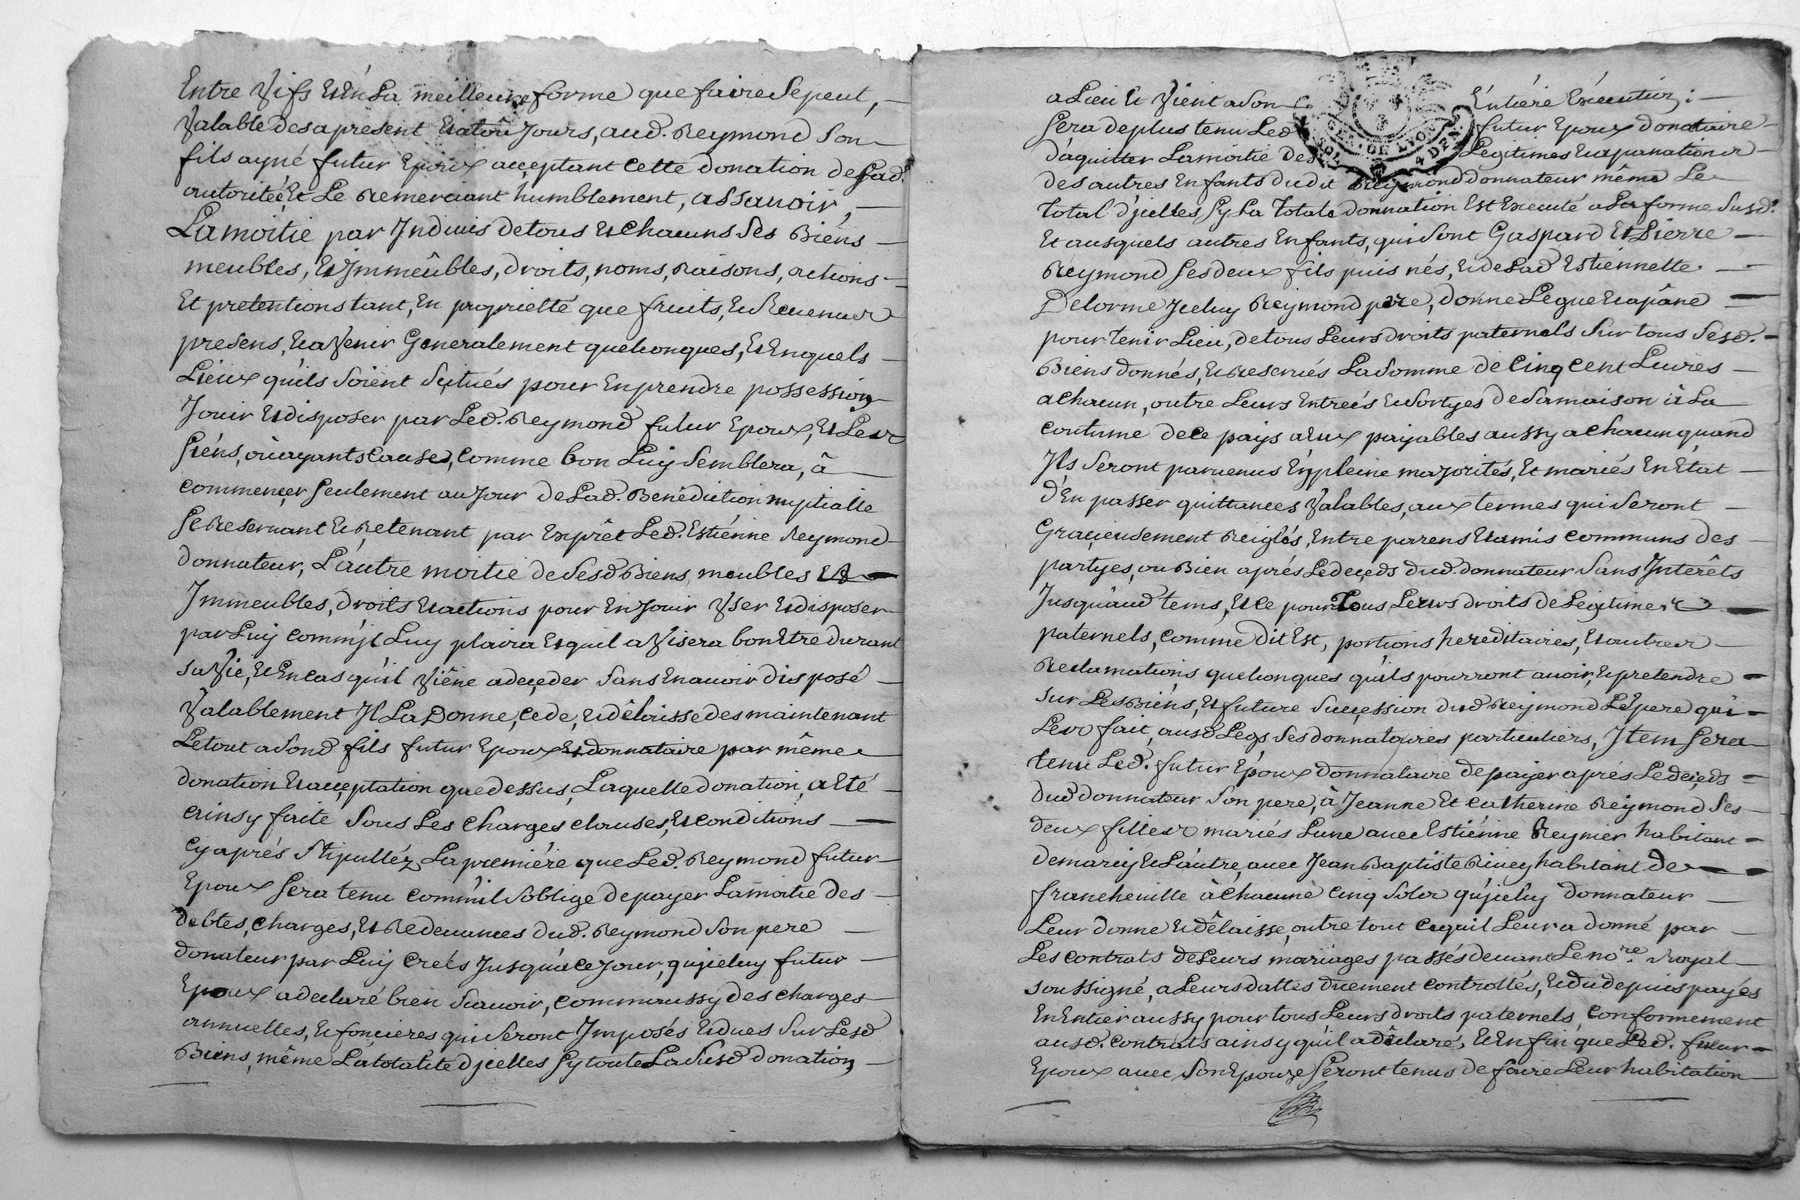 Entre Vifs Et En La meilleure forme que faire Se peut,
Valable des apresent Et atou Jours, aud. Reymond Son
fils ayné futur Epoux acceptant cette donation de Sad.
autorité, Et Le Remerciant humblement, assavoir,
La moitie par Indivis de tous Et Chacuns Ses Biens
meubles, Et Immeûbles, droits, noms, Raisons, actions
Et pretentions tant, En proprietté que fruits, Et Revenus
presens, Et avenir Generalement quelconques, Et En quels
Lieux quils Soient Sytués pour En prendre possession
Jouir Et disposer par Led. Reymond futur Epoux, Et Les
Siens, ou ayants Cause, Comme bon Luy Semblera, â
commencer Seulement au Jour de Lad. Benediction nuptialle
Se Reservant Et Retenant par Exprêt Led. Estienne Reymond
donnateur, L'autre moitie de Sesd Biens meubles Et
Immeubles, droits Et actions pour En Jouir User Et disposer
par Luy comm'jl Luy plaira Et quil avisera bon Etre durant
Sa Vie, Et En Cas qu'il Viêne a deçeder Sans En avoir disposé
Valablement Il La Donne, Cede, Et dêlaisse des maintenant
Le tout a Sond fils futur Epoux Et donnataire par même
donation Et acceptation que dessus, Laquelle donation, a Eté
ainsy faite Sous Les Charges clauses, Et conditions
Cy aprés Stipulléz La premiére que Led. Reymond futur
Epoux Sera tenu comm'il S'oblige de payer La moitie des
debtes, charges, Et Redevances dud. Reymond Son pere
donateur par Luy Creés Jusqu'a Ce Jour, qu'jcluy futur
Epoux a declaré bien Scavoir, comm'aussy des charges
annuelles, Et foncieres qui Seront Imposés Et dues Sur Lesd
Biens, même La totalité d'jcelles Sy toute La Susd donation,
a Lieu Et Vient a Son Entiére Execution;
Sera de plus tenu Led futur Epoux donataire
d'aquitter La moitie des Legitimes Et apanation
des autres Enfants dudit Reymond donnateur même Le
total d'jcelles Sy La Totale donnation Est Executé a La forme Susd.
Et ausquels autres Enfants, qui Sont Gaspard Et Pierre
Reymond Ses deux fils puis nés, Et de Lad Estiennette
Delorme Jceluy Reymond pere, donne Legue Et apâne
pour tenir Lieu, de tous Leurs droits paternels Sur tous Sesd.
Biens donnés, Et Reservés La Somme de Cinq cent Livres
a Chacun, outre Leurs Entreés Et Sortyes de Sa maison à La
coutume de ce pays a Eux payables aussy a Chacun quand
Ils Seront parvenus En pleine majorités, Et mariés En Etat
d'En passer quittances Valables, aux termes qui Seront
Gracieusement Reiglés, Entre parens Et amis communs des
partyes, ou Bien aprés Le deçeds dud. donnateur Sans Interêts
Jusqu'aud tems, Et Ce pour Tous Leurs droits de Legitime
paternels, comme dit Est, portions hereditaires, Et autres
Reclamations quelconques qu'ils pourront avoir, Et pretendre
Sur Les Biens, Et future Succession dud Reymond Le Pere qui
Leur fait, ausd Legs Ses donnatoires particuliers, Item Sera
tenu Led. futur Epoux donnataire de payer aprés Le deçeds
dud donnateur Son pere, à Jeanne Et Catherine Reymond Ses
deux filles mariés L'une avec Estienne Reynier habitant
de marcy Et L'autre, avec Jean Baptiste Rivey habitant de
francheville à Chacune Cinq Sols qu'jceluy donnateur
Leur donne Et dêlaisse, outre tout Ce quil Leur a donné par
Les contrats de Leurs mariages passés devant Le no.re Royal
Soussigné, a Leurs dattes dûement controllés, Et du depuis payés
En Entier aussy pour tous Leurs droits paternels, conformement
ausd. contrats ainsy qu'il a dêclaré, Et En fin que Led. futur
Epoux avec Son Epouze Seront tenus de faire Leur habitation